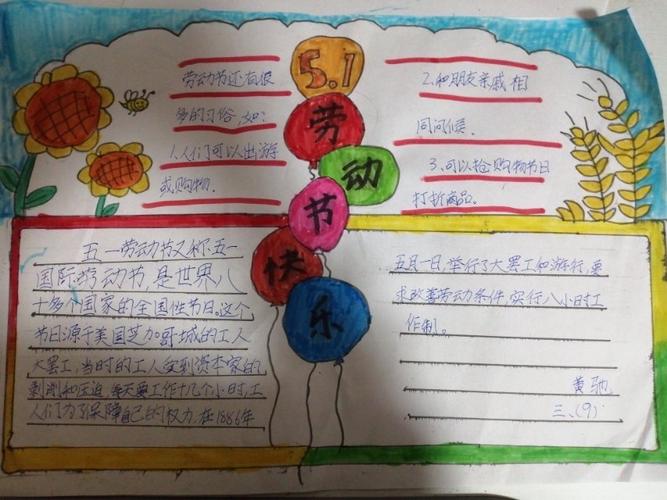 5.1
劳
动
节
快
乐
劳动节还有很
多的习俗,如:
1.人们可以出游
或购物.
2.和朋友亲戚相
同问候.
3.可以抢购物节日
打折商品.
五一劳动节又称五一
国际劳动节,是世界八
十多个国家的全国性节日。这个
节日源于美国芝加哥城的工人
大罢工,当时的工人受到资本家的
剥削和压迫,每天要工作十几个小时,工
人们为了保障自己的权力,在1886年
五月一日,举行了大罢工和游行,要
求改善劳动条件,实行八小时工
作制。
黄驰
三、(9)